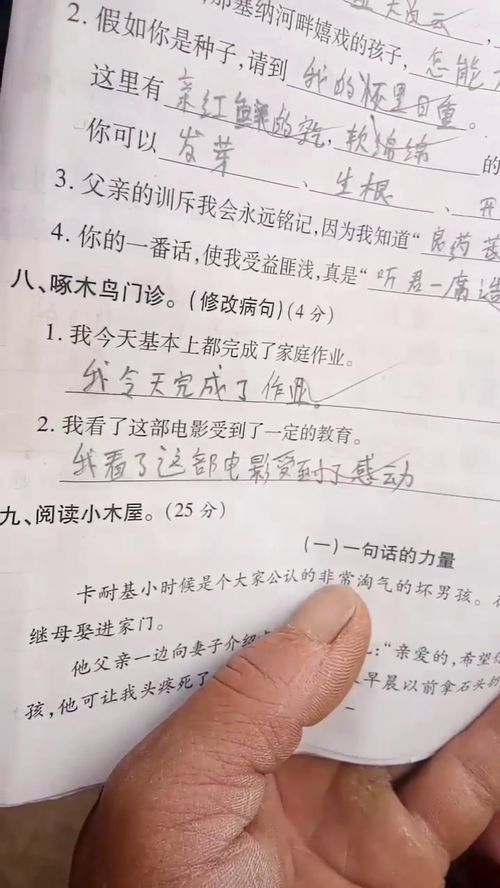 那塞纳河畔嬉戏的孩子,
2. 假如你是种子,请到 我的怀里 。
这里有 的 , 软绵绵 的
你可以 发芽 、 生根 、 开
3. 父亲的训斥我会永远铭记,因为我知道“ 良药
4. 你的一番话,使我受益匪浅,真是“ 听君一席
八、啄木鸟门诊。(修改病句)(4分)
1. 我今天基本上都完成了家庭作业。
我今天完成了作业。
2. 我看了这部电影受到了一定的教育。
我看了这部电影受到了感动
九、阅读小木屋。(25分)
(一)一句话的力量
卡耐基小时候是个大家公认的非常淘气的坏男孩。
继母娶进家门。
他父亲一边向妻子介绍 :“亲爱的,希望你
孩,他可让我头疼死了 早晨以前拿石头